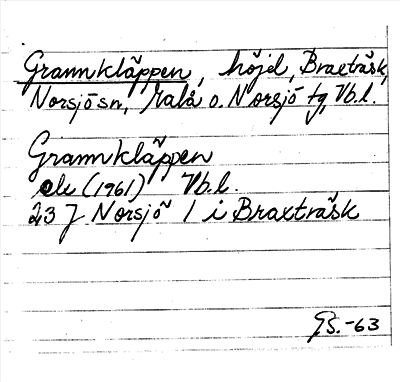 Grannkläppen, höjd, Braxträsk,
Norsjö sn, Malå o. Norsjö tg, Vb.l.
Grannkläppen
ek (1961) Vb.l.
23 J Norsjö 1 i Braxträsk
G.S.-63